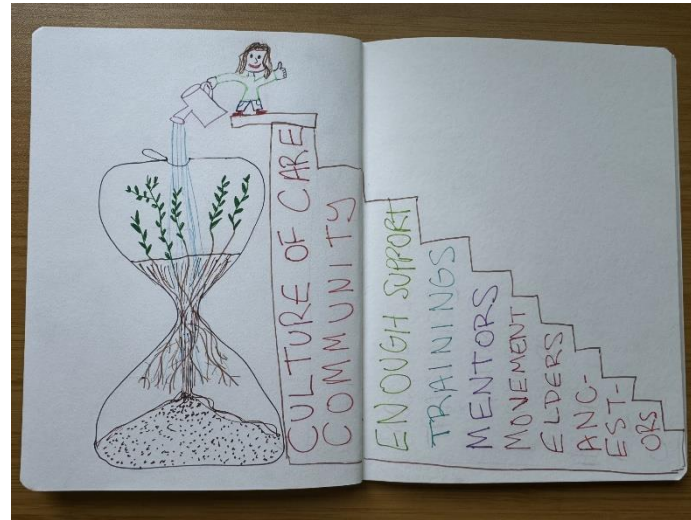 CULTURE OF CARE
COMMUNITY
ENOUGH SUPPORT
TRAININGS
MENTORS
MOVEMENT
ELDERS
ANC-
EST-
ORS